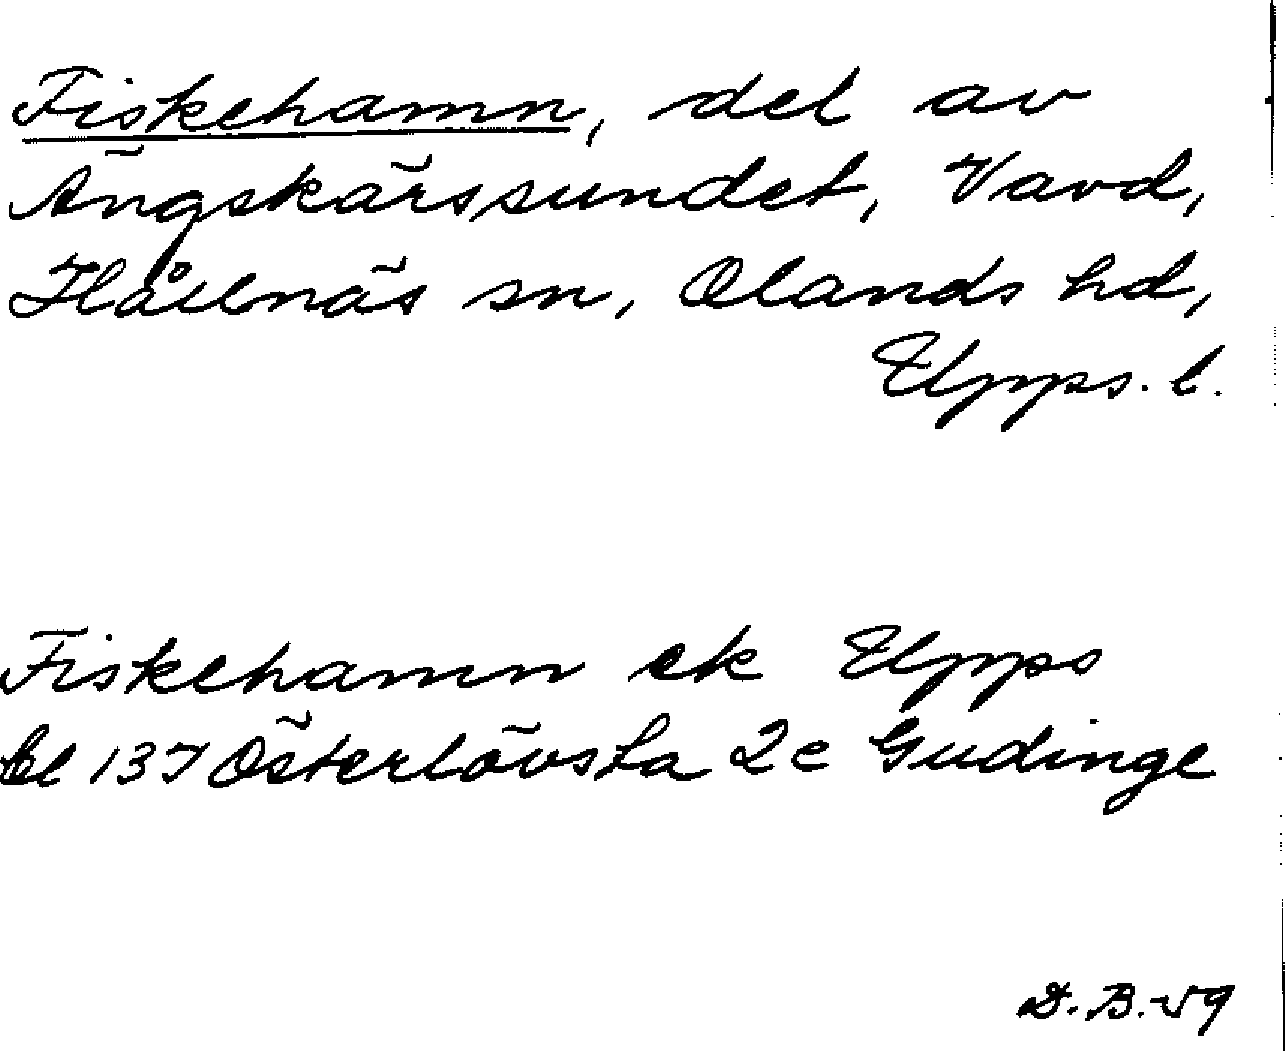 Fiskehamn, del av
Ängskärssundet, Vavd,
Hållnäs sn, Olands hd,
Upps. l.
Fiskehamn ek Upps
bl 137 Österlövsta 2e Gudinge
D.B.-59